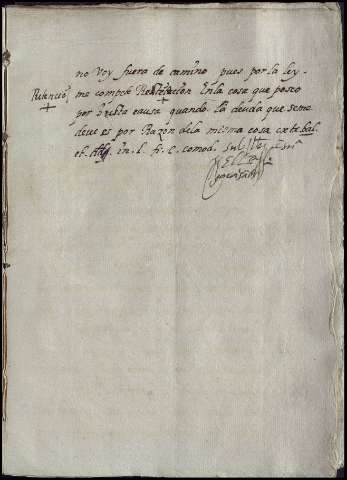 no voy fuera de camino pues por la ley
Retencio me compete Retencion en la cosa que poseo
por Justa causa quando la deuda que se me
deue es por Razon dela misma cosa ex te. bal.
et in. l. fi. C. comod.